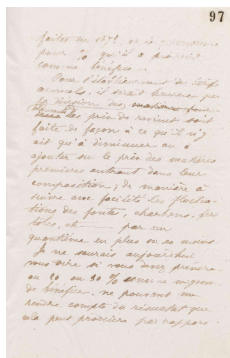 97
faites en 1872 et à
pour % qu'il a
comme bénéfice.
Pour l'établissement de tarifs
annuels, il serait heureux que
la division des matières pour
les prix de revient soit
faite de façon à ce qu'il n'y
ait qu'à diminuer ou à
ajouter sur le prix des matières
premières entrant dans leur
composition, de manière à
suivre avec facilité les fluctua-
tions des fontes, charbons, fers
toles, etc par un
quantième en plus ou en moins.
Je ne saurais aujourd'hui
vous dire si vous devez prendre
ou 20 ou 30 % comme moyenne
de bénéfice, ne pouvant me
rendre compte du résultat que
cela peut produire par rapport